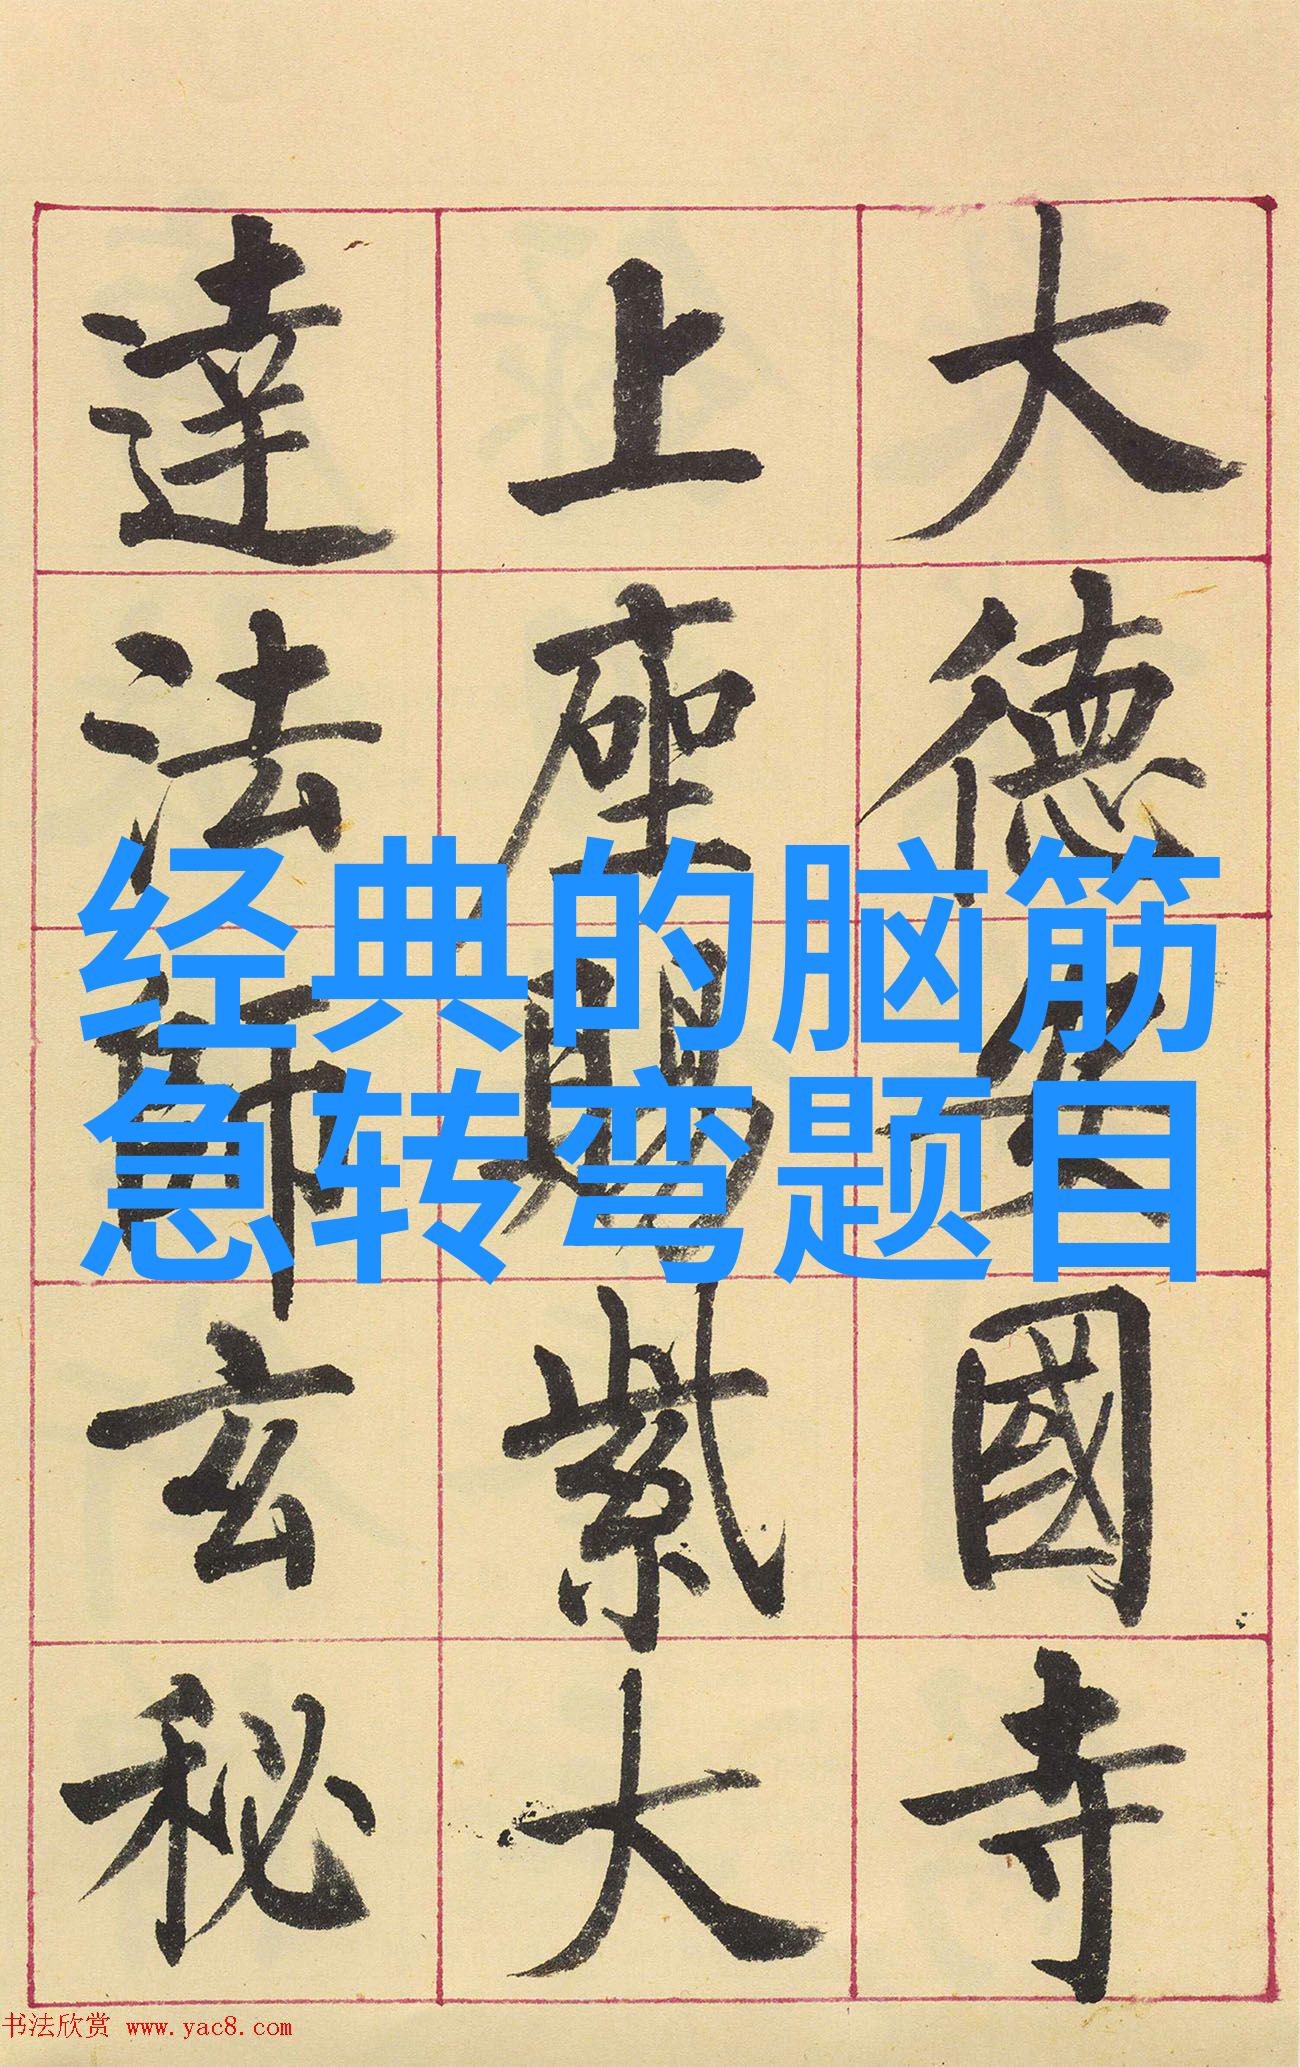 大德安國寺
上座賜紫大
達法師玄秘
经典的脑筋
急转弯题目
书法欣赏 www.yac8.com